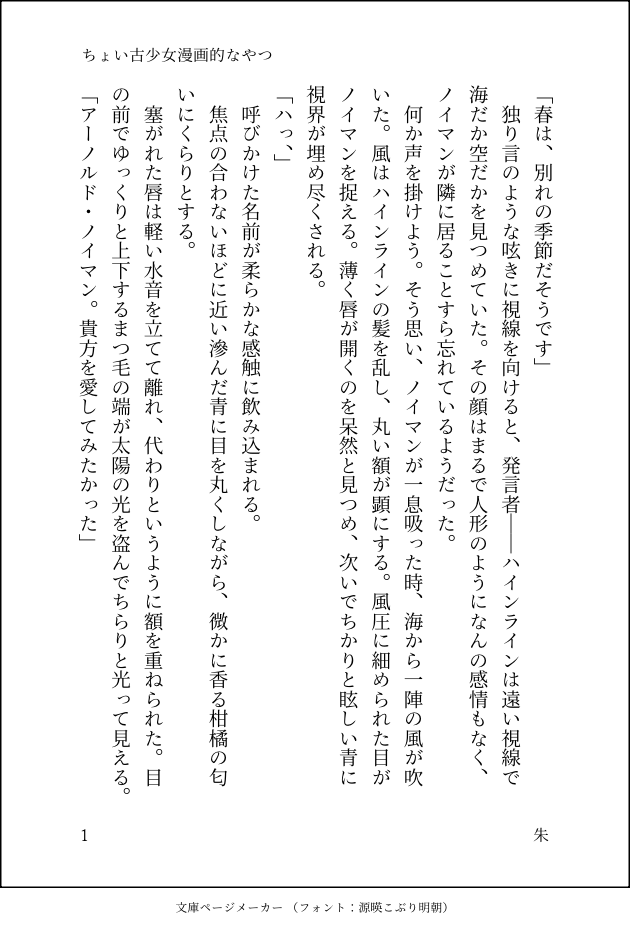 ちょい古少女漫画的なやつ
「春は、別れの季節だそうです」
　独り言のような呟きに視線を向けると、発言者――ハインラインは遠い視線で
海だか空だかを見つめていた。その顔はまるで人形のようになんの感情もなく、
ノイマンが隣に居ることすら忘れているようだった。
　何か声を掛けよう。そう思い、ノイマンが一息吸った時、海から一陣の風が吹
いた。風はハインラインの髪を乱し、丸い額が顕にする。風圧に細められた目が
ノイマンを捉える。薄く唇が開くのを呆然と見つめ、次いでちかりと眩しい青に
視界が埋め尽くされる。
「ハっ、」
　呼びかけた名前が柔らかな感触に飲み込まれる。
　焦点の合わないほどに近い滲んだ青に目を丸くしながら、微かに香る柑橘の匂
いにくらりとする。
　塞がれた唇は軽い水音を立てて離れ、代わりというように額を重ねられた。目
の前でゆっくりと上下するまつ毛の端が太陽の光を盗んでちらりと光って見える。
「アーノルド・ノイマン。貴方を愛してみたかった」
朱
1
文庫ページメーカー（フォント：源暎こぶり明朝）